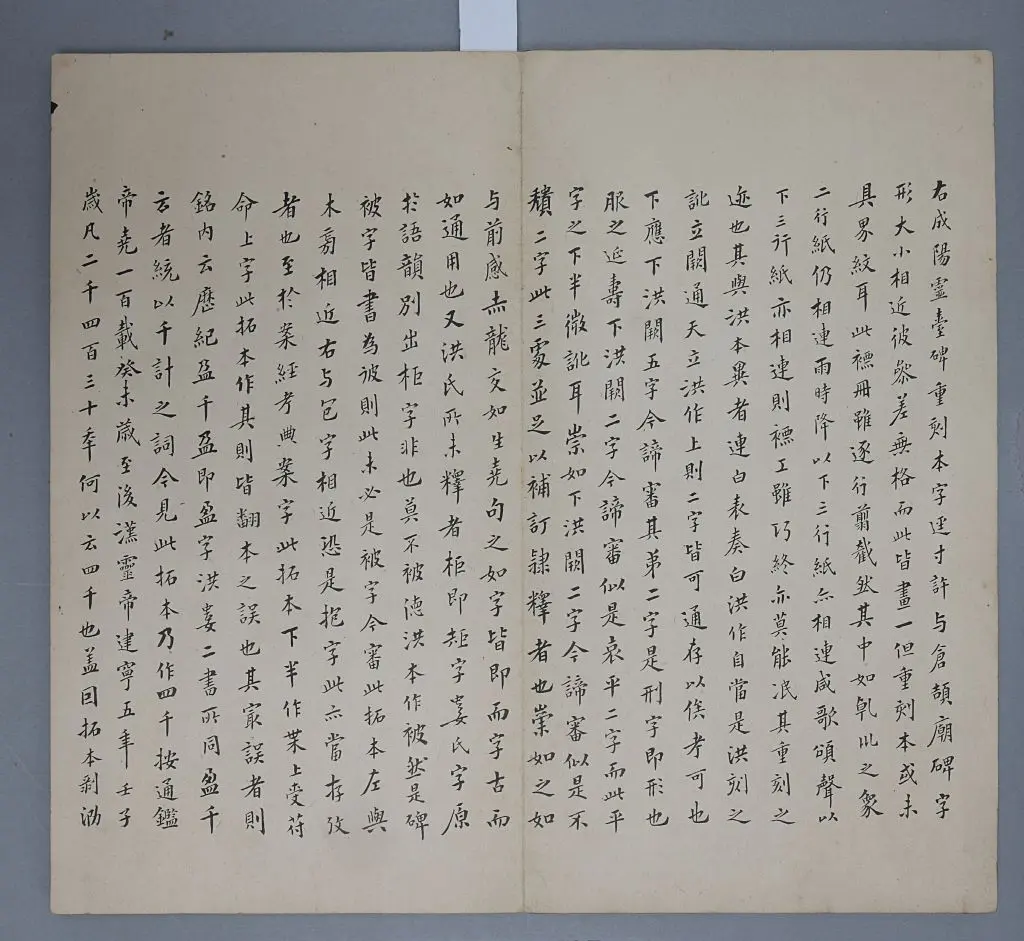 右成陽靈臺碑重刻本字徑寸許与倉頡廟碑字
形大小相近彼參差無格而此皆畫一但重刻本或未
具界紋耳此褾冊雖逐行翦截然其中如乹𠃊之象
二行紙仍相連雨時降以下三行紙亦相連咸歌頌聲以
下三行紙亦相連則褾工雖巧終亦莫能泯其重刻之
迹也其與洪本異者連白表奏白洪作自當是洪刻之
訛立闕通天立洪作上則二字皆可通存以俟考可也
下應下洪闕五字今諦審其弟二字是刑字即形也
服之延壽下洪闕二字今諦審似是哀平二字而此平
字之下半微訛耳崇如下洪闕二字今諦審似是不
穨二字此三處並足以補訂隸釋者也崇如之如
与前感赤龍交如生堯句之如字皆即而字古而
如通用也又洪氏所未釋者柜即矩字婁氏字原
於語韻別出柜字非也莫不被德洪本作被然是碑
被字皆書為彼則此未必是被字今審此拓本左與
木旁相近右与包字相近恐是抱字此亦當存攷
者也至於案經考典案字此拓本下半作菜上受苻
命上字此拓本作其則皆翻本之誤也其㝡誤者則
銘內云歷紀盈千盈即盈字洪婁二書所同盈千
云者統以千計之詞今見此拓本乃作四千按通鑑
帝堯一百載癸未歲至後漢靈帝建寧五年壬子
歲凡二千四百三十秊何以云四千也盖因拓本剥泐